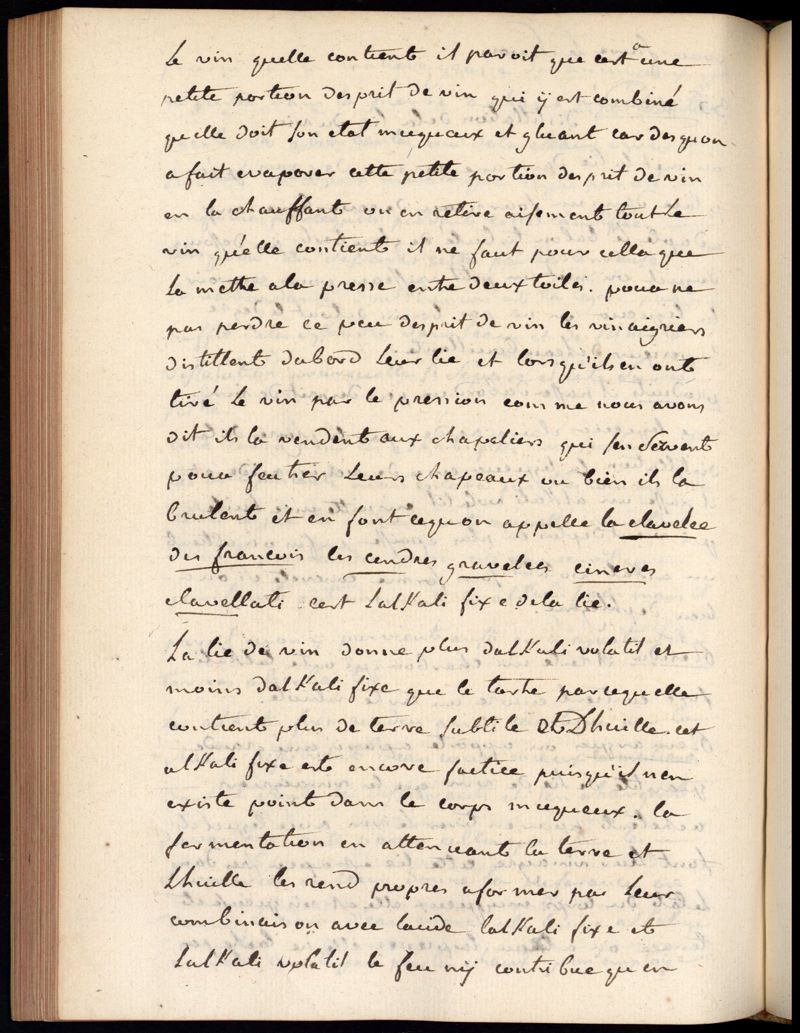 Le vin quelle contient il paroit que cest a une
petite portion desprit de vin qui ÿ est combiné
quelle doit son etat muqueux et gluant car des quon
a fait evaporer cette petite portion desprit de vin
en la chauffant on en retire aisement tout Le
vin qu'elle contient il ne faut pour cella que
La mettre a la presse entre deux toiles. pour ne
pas perdre ce peu desprit de vin les vinaigriers
distillent dabord Leur lie et lorsqu'ils en ont
tiré Le vin par le pression comme nous avons
dit ils la vendent aux chapeliers qui sen servent
pour feutrer Leurs chapeaux ou bien ils la
brulent et en font cequon appelle la clavelée
des francois les cendres gravelees cineres
clavellati cest Lalkali fixe de la lie.
La lie de vin donne plus dalkali volatil et
moins dalkali fixe que le tartre parcequelle
contient plus de terre subtile et Dhuille. cet
alkali fixe est encore factice puisqu'il nen
existe point dans le corps muqueux. la
fermentation en attenuant la terre et
Lhuille les rend propres a former par Leur
combinaison avec lacide lalkali fixe et
Lalkali volatil le feu nÿ contribue quen